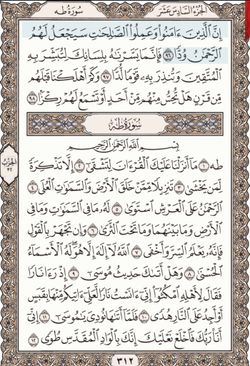 الجزء السادس عشر سورة طه
إِنَّ الَّذِينَ ءَامَنُوا وَعَمِلُوا الصَّالِحَاتِ سَيَجْعَلُ لَهُمُ
الرَّحْمَٰنُ وُدًّا ٩٦ فَإِنَّمَا يَسَّرْنَاهُ بِلِسَانِكَ لِتُبَشِّرَ بِهِ
الْمُتَّقِينَ وَتُنذِرَ بِهِ قَوْمًا لُّدًّا ٩٧ وَكَمْ أَهْلَكْنَا قَبْلَهُم
مِّن قَرْنٍ هَلْ تُحِسُّ مِنْهُم مِّنْ أَحَدٍ أَوْ تَسْمَعُ لَهُمْ رِكْزًا ٩٨
سُورَةُ طه
بِسْمِ اللَّهِ الرَّحْمَٰنِ الرَّحِيمِ
طه ١ مَا أَنزَلْنَا عَلَيْكَ الْقُرْءَانَ لِتَشْقَىٰ ٢ إِلَّا تَذْكِرَةً
لِّمَن يَخْشَىٰ ٣ تَنزِيلًا مِّمَّنْ خَلَقَ الْأَرْضَ وَالسَّمَاوَاتِ الْعُلَى ٤
الرَّحْمَٰنُ عَلَى الْعَرْشِ اسْتَوَىٰ ٥ لَهُ مَا فِي السَّمَاوَاتِ وَمَا فِي
الْأَرْضِ وَمَا بَيْنَهُمَا وَمَا تَحْتَ الثَّرَىٰ ٦ وَإِن تَجْهَرْ بِالْقَوْلِ
فَإِنَّهُ يَعْلَمُ السِّرَّ وَأَخْفَى ٧ اللَّهُ لَا إِلَٰهَ إِلَّا هُوَ لَهُ الْأَسْمَاءُ
الْحُسْنَىٰ ٨ وَهَلْ أَتَاكَ حَدِيثُ مُوسَىٰ ٩ إِذْ رَءَا نَارًا
فَقَالَ لِأَهْلِهِ امْكُثُوا إِنِّي ءَانَسْتُ نَارًا لَّعَلِّي ءَاتِيكُم مِّنْهَا بِقَبَسٍ
أَوْ أَجِدُ عَلَى النَّارِ هُدًى ١٠ فَلَمَّا أَتَاهَا نُودِيَ يَا مُوسَىٰ ١١ إِنِّي
أَنَا رَبُّكَ فَاخْلَعْ نَعْلَيْكَ إِنَّكَ بِالْوَادِ الْمُقَدَّسِ طُوًى ١٢
٣١٢